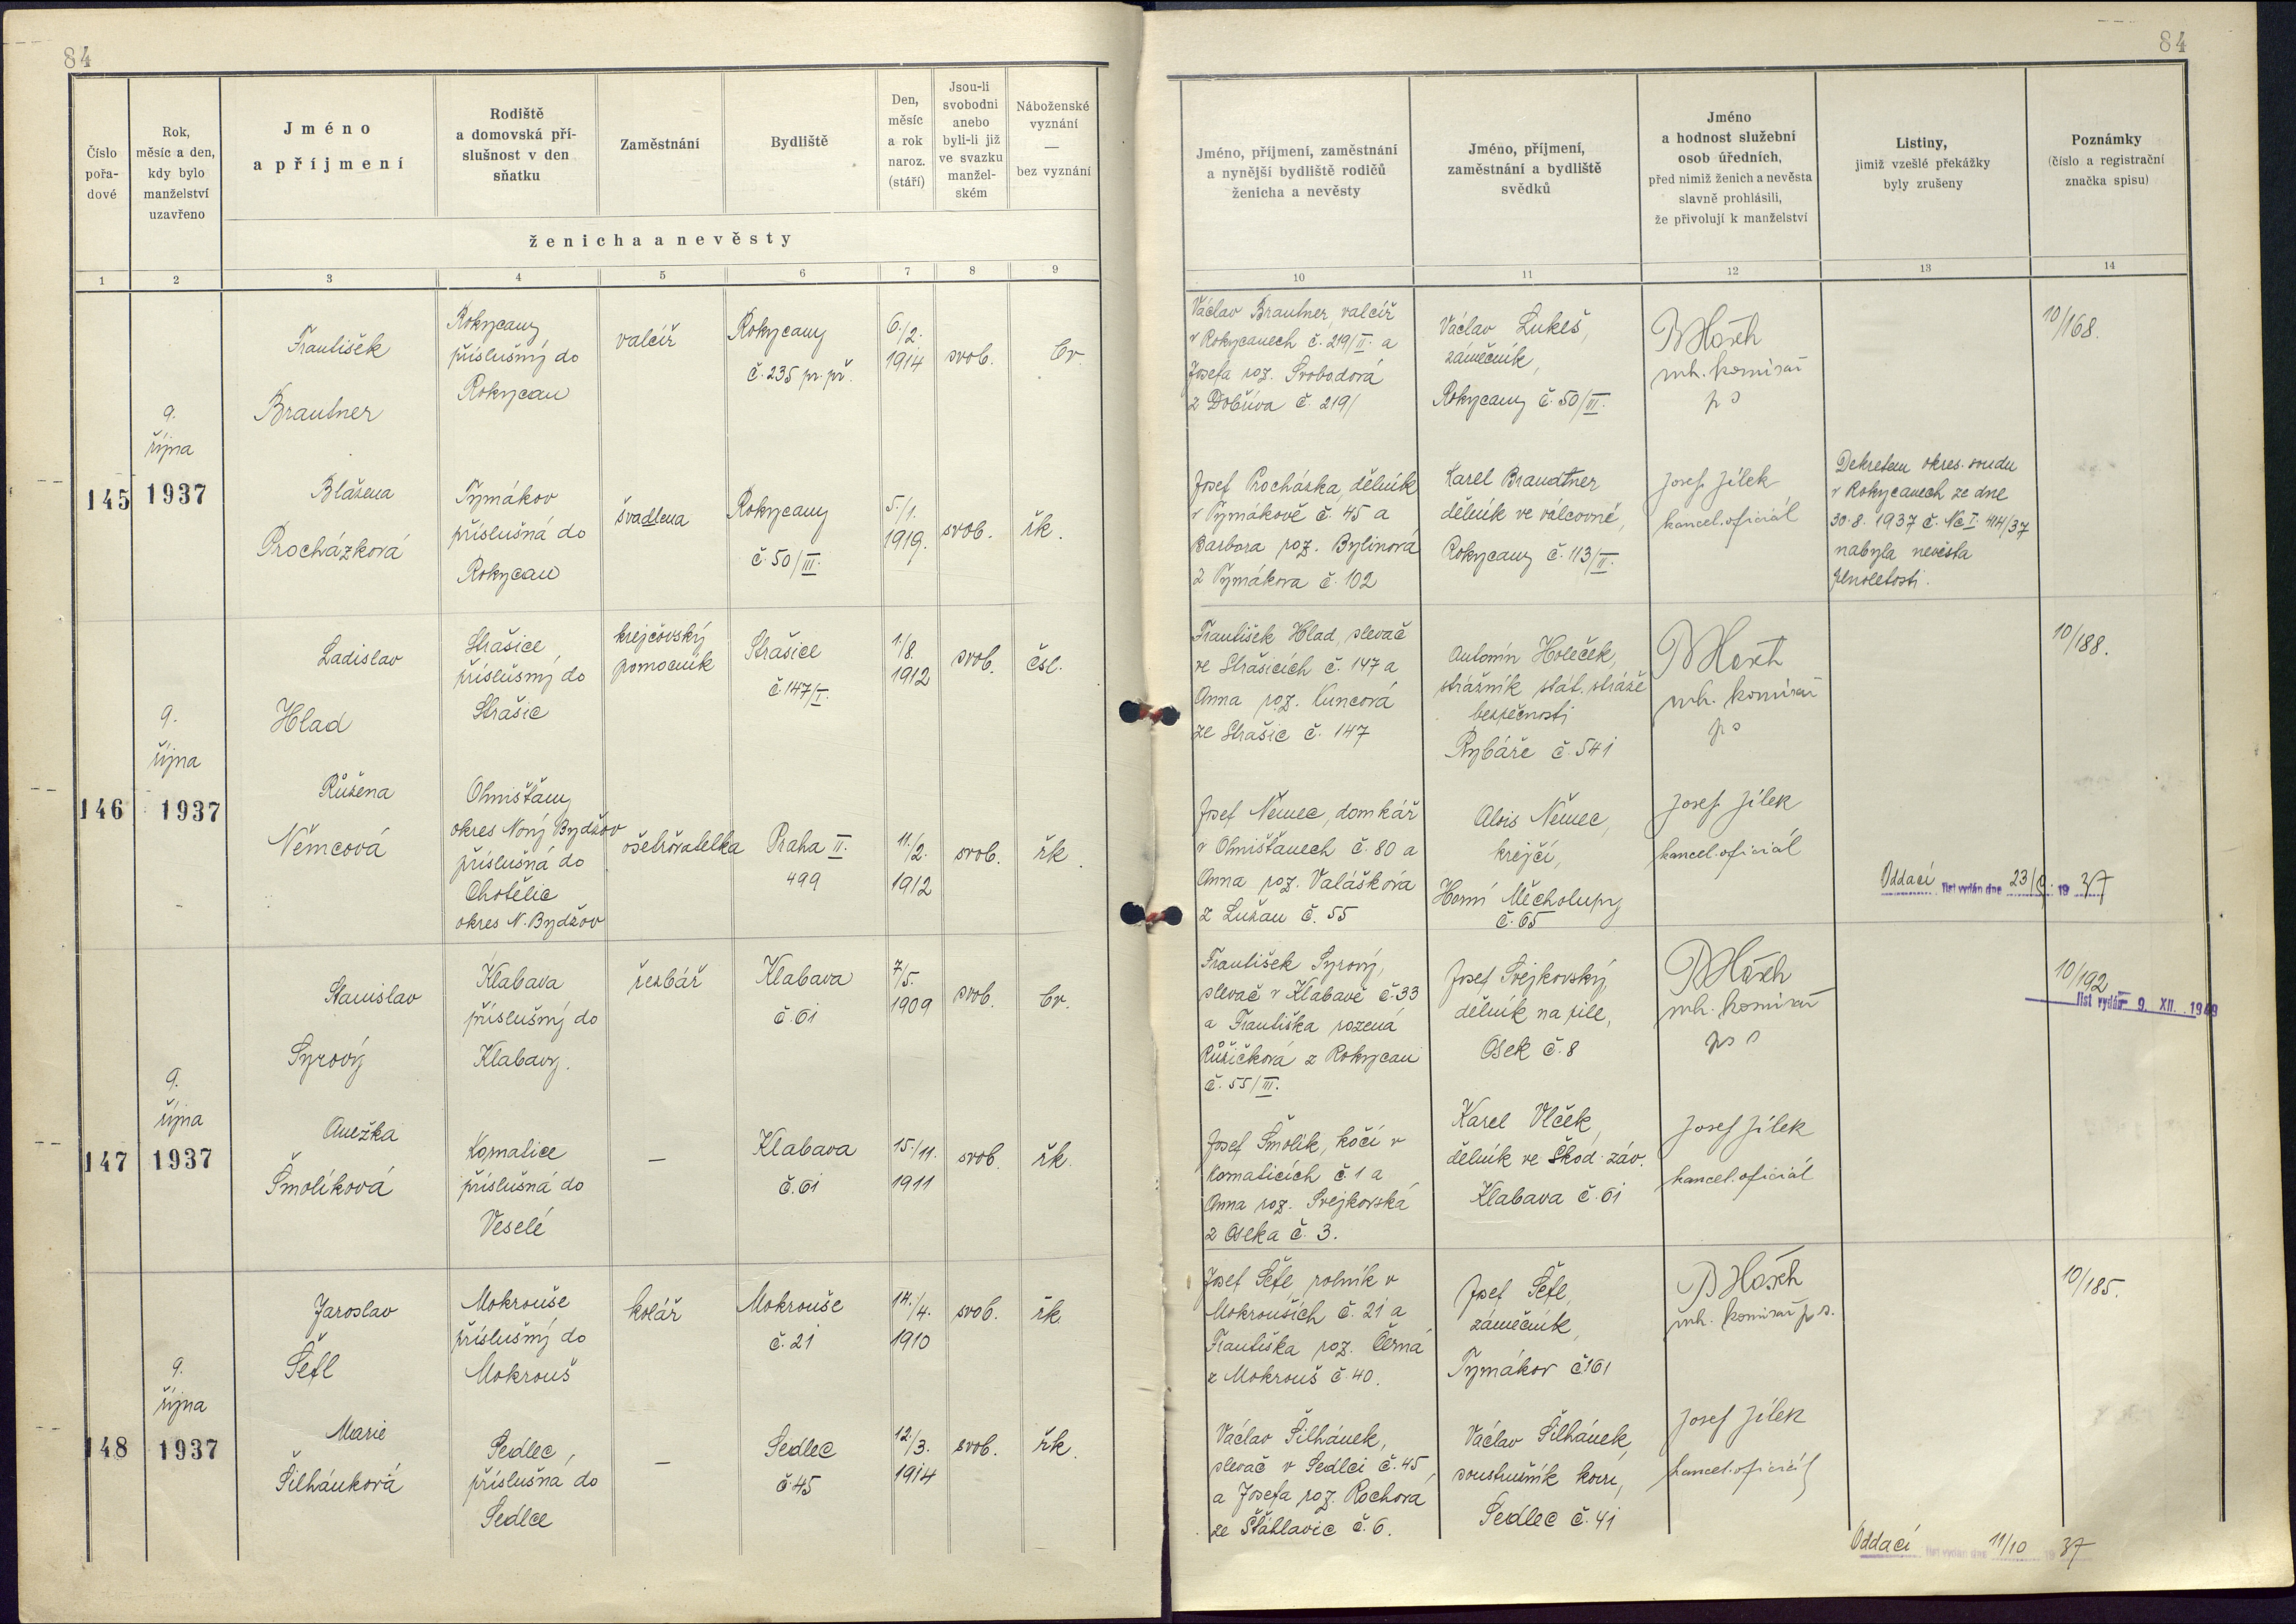 84
84
Číslo
pořa-
dové
Rok,
měsíc a den,
kdy bylo
manželství
uzavřeno
Jméno
a příjmení
Rodiště
a domovská pří-
slušnost v den
sňatku
Zaměstnání
Bydliště
Den,
měsíc
a rok
naroz.
(stáří)
Jsou-li
svobodni
anebo
byli-li již
ve svazku
manžel-
ském
Náboženské
vyznání
—
bez vyznání
ženicha a nevěsty
Jméno, příjmení, zaměstnání
a nynější bydliště rodičů
ženicha a nevěsty
Jméno, příjmení,
zaměstnání a bydliště
svědků
Jméno
a hodnost služební
osob úředních,
před nimiž ženich a nevěsta
slavně prohlásili,
že přivolují k manželství
Listiny,
jimiž vzešlé překážky
byly zrušeny
Poznámky
(číslo a registrační
značka spisu)
1 2 3 4 5 6 7 8 9 10 11 12 13 14
145
9.
října
1937
František
Brautner
Rokycany
příslušný do
Rokycan
valcíř
Rokycany
č. 235 pr. př.
6./2.
1914
svob.
čv.
Václav Brautner, valcíř
v Rokycanech č. 219/II. a
Josefa roz. Svobodová
z Dobříva č. 219/
Václav Lukeš,
zámečník,
Rokycany č. 50/III.
mh. komisař
10/168.
Blažena
Procházková
Tymákov
příslušná do
Rokycan
švadlena
Rokycany
č. 50/III.
5./1.
1919.
svob.
řk.
Josef Procházka, dělník
v Tymákově č. 45 a
Barbora roz. Bylinová
z Tymákova č. 102
Karel Brautner
dělník ve válcovně,
Rokycany č. 113/II.
Josef Jílek
kancel. oficiál
Dekretem okres. soudu
v Rokycanech ze dne
30. 8. 1937 č. Nc I. 414/37
nabyla nevěsta
zletilosti.
146
9.
října
1937
Ladislav
Hlad
Strašice
příslušný do
Strašic
krejčovský
pomocník
Strašice
č. 147/I.
1./8.
1912
svob.
čsl.
František Hlad, slevač
ve Strašicích č. 147 a
Anna roz. Kuncová
ze Strašic č. 147
Antonín Holeček,
strážník stát. stráže
bezpečnosti
Rybáře č. 541
mh. komisař
10/188.
Růžena
Němcová
Ohnišťany
okres Nový Bydžov
příslušná do
Chotělic
okres N. Bydžov
ošetřovatelka
Praha II.
499
11./2.
1912
svob.
řk.
Josef Němec, domkář
v Ohnišťanech č. 80 a
Anna roz. Valášková
z Lužan č. 55
Alois Němec,
krejčí,
Horní Měcholupy
č. 65
Josef Jílek
kancel. oficiál
Oddací list vydán dne 23/ 19 37
147
9.
října
1937
Stanislav
Syrový
Klabava
příslušný do
Klabavy.
řezbář
Klabava
č. 61
7./5.
1909
svob.
čv.
František Syrový,
slevač v Klabavě č. 33
a Františka rozená
Růžičková z Rokycan
č. 55/III.
Josef Svejkovský,
dělník na pile,
Osek č. 8
mh. komisař
10/192
list vydán 9. XII. 1949
Anežka
Šmolíková
Kornatice
příslušná do
Veselé
—
Klabava
č. 61
15./11.
1911
svob.
řk.
Josef Šmolík, kočí v
Kornaticích č. 1 a
Anna roz. Svejkovská
z Oseka č. 3.
Karel Vlček,
dělník ve Škod. záv.
Klabava č. 61
Josef Jílek
kancel. oficiál
148
9.
října
1937
Jaroslav
Šefl
Mokrouše
příslušný do
Mokrouš
kolář
Mokrouše
č. 21
14./4.
1910
svob.
řk.
Josef Šefl, rolník v
Mokrouších č. 21 a
Františka roz. Černá
z Mokrouš č. 40.
Josef Šefl,
zámečník,
Tymákov č. 161
mh. komisař
10/185.
Marie
Šilhánková
Sedlec,
příslušna do
Sedlce
—
Sedlec
č. 45
12./3.
1914
svob.
řk.
Václav Šilhánek,
slevač v Sedlci č. 45,
a Josefa roz. Rochova
ze Šťáhlavic č. 6.
Václav Šilhánek,
soustružník kovů,
Sedlec č. 41
Josef Jílek
kancel. oficiál
Oddací list vydán dne 11/10 19 37